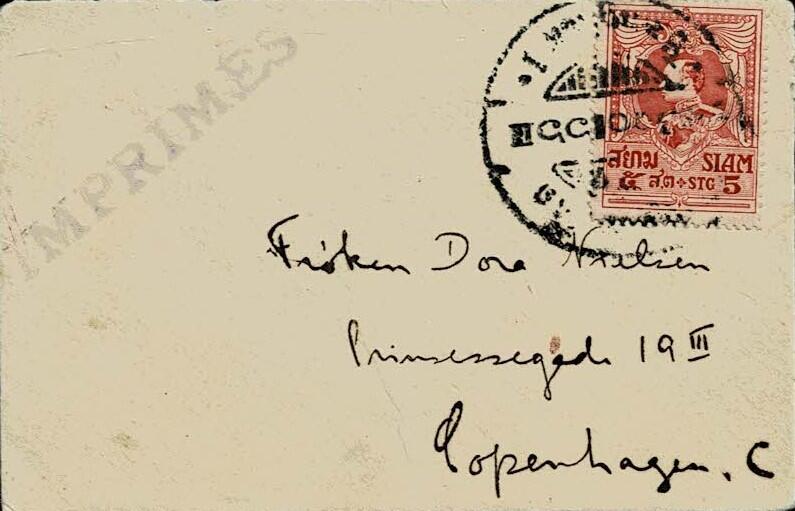 IMPRIMÉS
สยาม SIAM
๕ สต STG 5
Frøken Dora Nielsen
Prinsessegade 19 III
Copenhagen, C